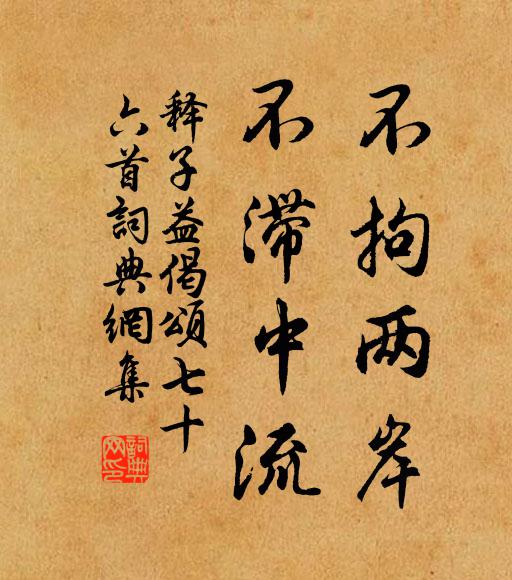 不拘两岸
不滞中流
释子益偈頌七十
六首詞典網集
詞典
网印